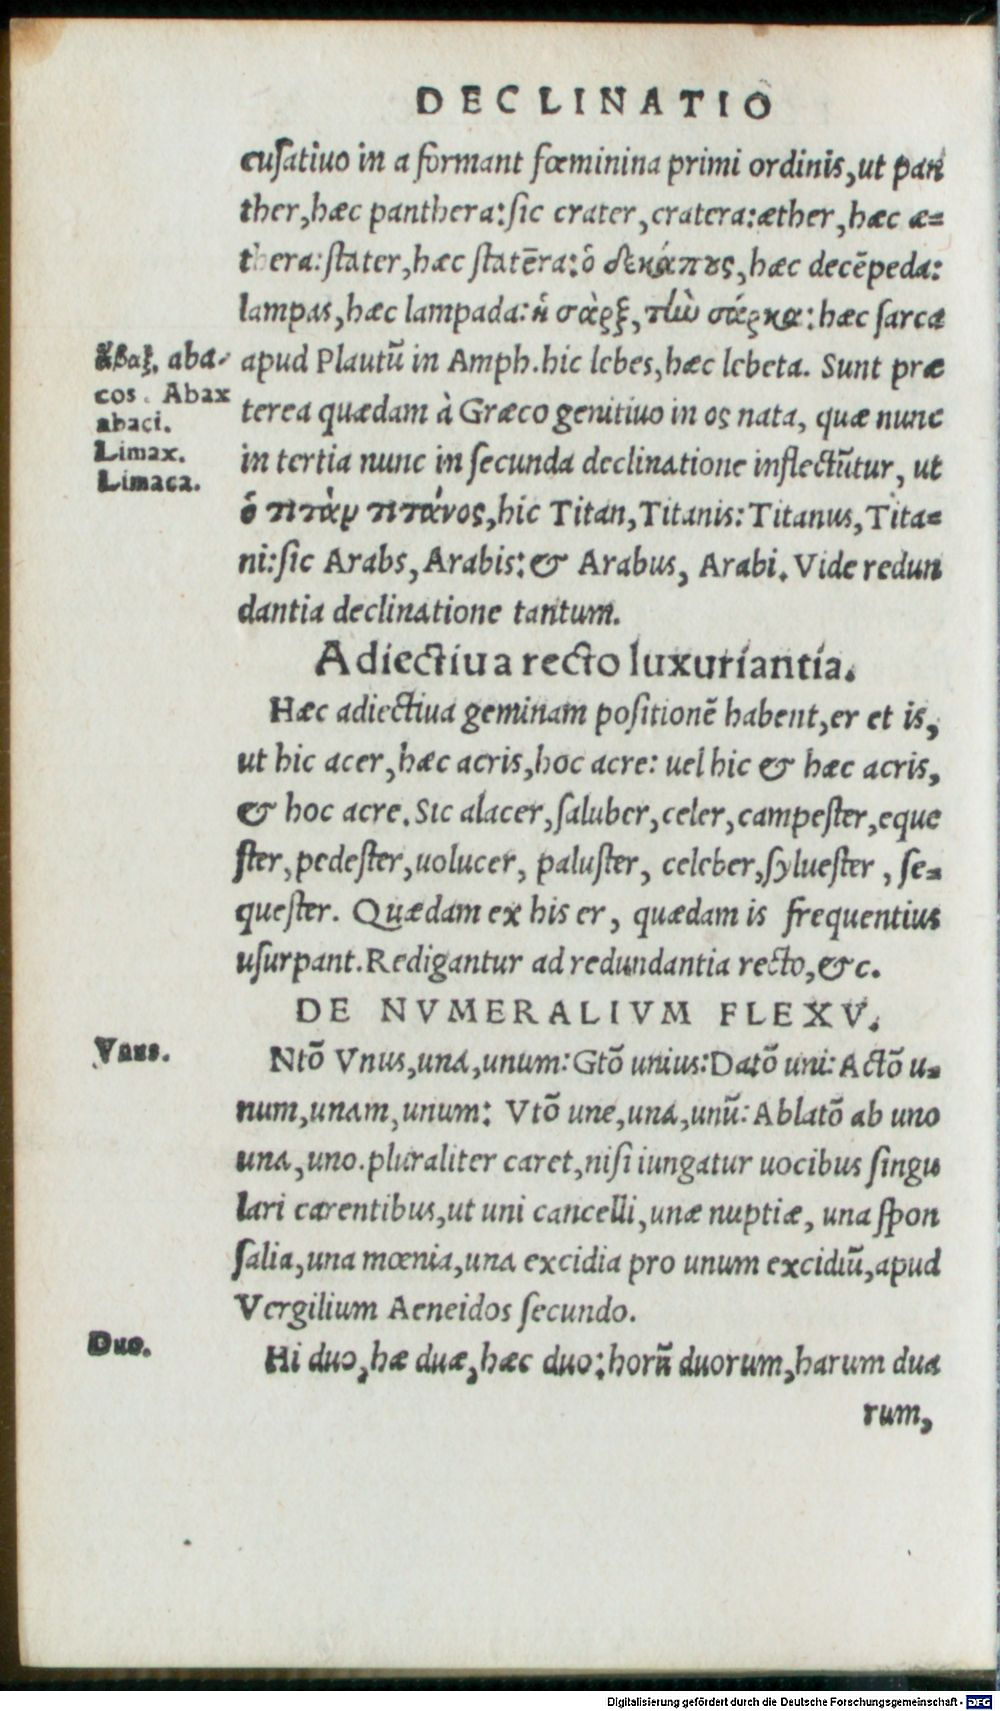 DECLINATIO
cusatiuo in a formant fœminina primi ordinis, ut pan
ther, hæc panthera: sic crater, cratera: æther, hæc æ=
thera: stater, hæc statēra: ὁ δεκάπους, hæc decēpeda:
lampas, hæc lampada: ἡ σὰρξ, τὼ σάρκα: hæc sarca
ἄβαξ, aba-
cos. Abax
abaci.
Limax.
Limaca.
apud Plautū in Amph. hic lebes, hæc lebeta. Sunt præ
terea quædam à Græco genitiuo in os nata, quæ nunc
in tertia nunc in secunda declinatione inflectūtur, ut
ὁ τιτὰν τιτάνος, hic Titan, Titanis: Titanus, Tita=
ni: sic Arabs, Arabis: & Arabus, Arabi. Vide redun
dantia declinatione tantum.
Adiectiua recto luxuriantia.
Hæc adiectiua geminam positionē habent, er et is,
ut hic acer, hæc acris, hoc acre: uel hic & hæc acris,
& hoc acre. Sic alacer, saluber, celer, campester, eque
ster, pedester, uolucer, paluster, celeber, syluester, se=
quester. Quædam ex his er, quædam is frequentius
usurpant. Redigantur ad redundantia recto, &c.
DE NVMERALIVM FLEXV.
Vnus.
Ntō Vnus, una, unum: Gtō unius: Datō uni: Actō u=
num, unam, unum: Vtō une, una, unū: Ablatō ab uno
una, uno. pluraliter caret, nisi iungatur uocibus singu
lari carentibus, ut uni cancelli, unæ nuptiæ, una spon
salia, una mœnia, una excidia pro unum excidiū, apud
Vergilium Aeneidos secundo.
Duo.
Hi duo, hæ duæ, hæc duo: horū duorum, harum dua
rum,
Digitalisierung gefördert durch die Deutsche Forschungsgemeinschaft - DFG